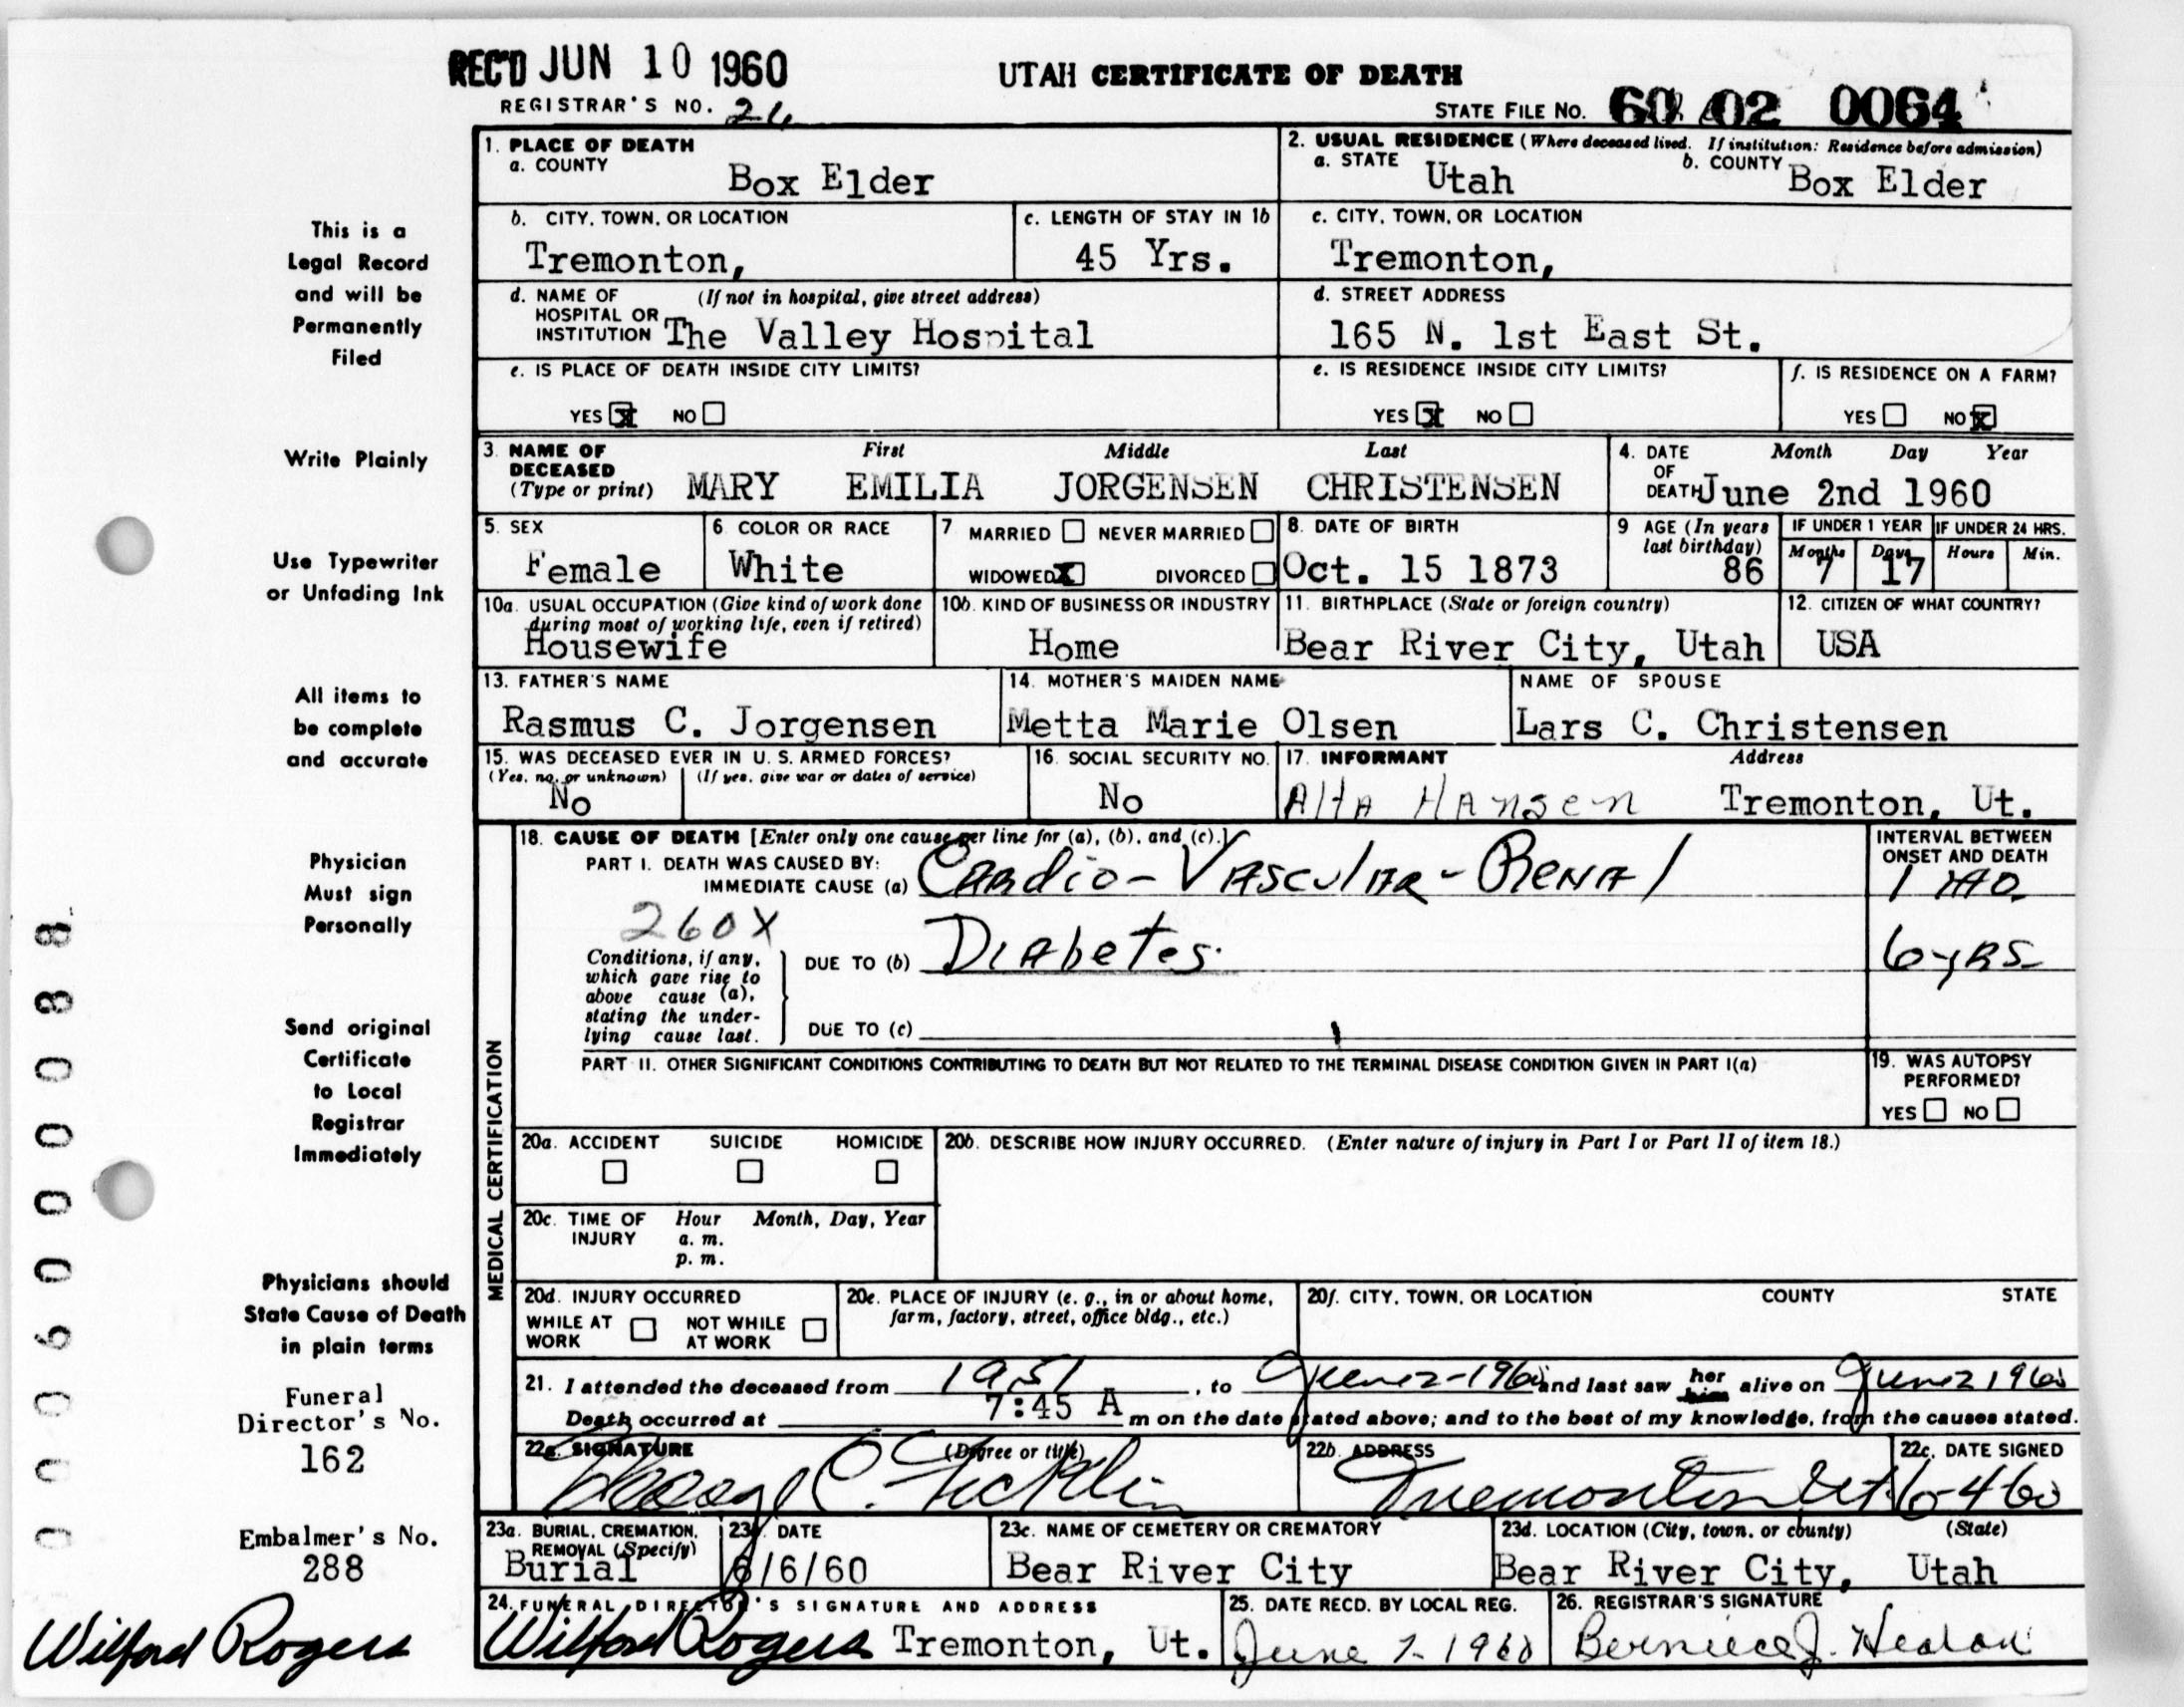 REC'D JUN 10 1960
UTAH CERTIFICATE OF DEATH
REGISTRAR'S NO. 26
STATE FILE NO. 60 02 0064
1. PLACE OF DEATH
a. COUNTY Box Elder
2. USUAL RESIDENCE (Where deceased lived. If institution: Residence before admission)
a. STATE Utah b. COUNTY Box Elder
b. CITY, TOWN, OR LOCATION Tremonton,
c. LENGTH OF STAY IN 1b 45 Yrs.
c. CITY, TOWN, OR LOCATION Tremonton,
d. NAME OF HOSPITAL OR INSTITUTION (If not in hospital, give street address) The Valley Hospital
d. STREET ADDRESS 165 N. 1st East St.
e. IS PLACE OF DEATH INSIDE CITY LIMITS?
YES X NO
e. IS RESIDENCE INSIDE CITY LIMITS?
YES X NO
f. IS RESIDENCE ON A FARM?
YES NO X
3. NAME OF DECEASED (Type or print) First Middle Last
MARY EMILIA JORGENSEN CHRISTENSEN
4. DATE OF DEATH Month Day Year
June 2nd 1960
5. SEX Female
6. COLOR OR RACE White
7 MARRIED NEVER MARRIED
WIDOWED X DIVORCED
8. DATE OF BIRTH Oct. 15 1873
9 AGE (In years last birthday) 86
IF UNDER 1 YEAR Months 7 Days 17
IF UNDER 24 HRS. Hours Min.
10a. USUAL OCCUPATION (Give kind of work done during most of working life, even if retired) Housewife
10b. KIND OF BUSINESS OR INDUSTRY Home
11. BIRTHPLACE (State or foreign country) Bear River City, Utah
12. CITIZEN OF WHAT COUNTRY? USA
13. FATHER'S NAME Rasmus C. Jorgensen
14. MOTHER'S MAIDEN NAME Metta Marie Olsen
NAME OF SPOUSE Lars C. Christensen
15. WAS DECEASED EVER IN U. S. ARMED FORCES?
(Yes, no, or unknown) (If yes, give war or dates of service)
No
16. SOCIAL SECURITY NO. No
17. INFORMANT Address
Alta Hansen Tremonton, Ut.
MEDICAL CERTIFICATION
18. CAUSE OF DEATH [Enter only one cause per line for (a), (b), and (c).]
PART I. DEATH WAS CAUSED BY:
IMMEDIATE CAUSE (a) Cardio-Vascular-Renal
INTERVAL BETWEEN ONSET AND DEATH
1 mo.
260X
Conditions, if any, which gave rise to above cause (a), stating the underlying cause last.
DUE TO (b) Diabetes. 6 yrs
DUE TO (c)
PART II. OTHER SIGNIFICANT CONDITIONS CONTRIBUTING TO DEATH BUT NOT RELATED TO THE TERMINAL DISEASE CONDITION GIVEN IN PART I(a)
19. WAS AUTOPSY PERFORMED?
YES NO
20a. ACCIDENT SUICIDE HOMICIDE
20b. DESCRIBE HOW INJURY OCCURRED. (Enter nature of injury in Part I or Part II of item 18.)
20c. TIME OF INJURY Hour Month, Day, Year
a. m.
p. m.
20d. INJURY OCCURRED
WHILE AT WORK NOT WHILE AT WORK
20e. PLACE OF INJURY (e. g., in or about home, farm, factory, street, office bldg., etc.)
20f. CITY, TOWN, OR LOCATION COUNTY STATE
21. I attended the deceased from 1951, to June 2-1960 and last saw her him alive on June 2 1960
Death occurred at 7:45 A m on the date stated above; and to the best of my knowledge, from the causes stated.
22a. SIGNATURE (Degree or title)
George C. Ficklin
22b. ADDRESS Tremonton Ut.
22c. DATE SIGNED 6-4 60
23a. BURIAL, CREMATION, REMOVAL (Specify) Burial
23b. DATE 6/6/60
23c. NAME OF CEMETERY OR CREMATORY Bear River City
23d. LOCATION (City, town, or county) (State)
Bear River City, Utah
24. FUNERAL DIRECTOR'S SIGNATURE AND ADDRESS
Wilford Rogers Tremonton, Ut.
25. DATE RECD. BY LOCAL REG. June 7-1960
26. REGISTRAR'S SIGNATURE Berniece J.
This is a
Legal Record
and will be
Permanently
Filed
Write Plainly
Use Typewriter
or Unfading Ink
All items to
be complete
and accurate
Physician
Must sign
Personally
Send original
Certificate
to Local
Registrar
Immediately
Physicians should
State Cause of Death
in plain terms
Funeral
Director's No.
162
Embalmer's No.
288
Wilford Rogers
0006000088